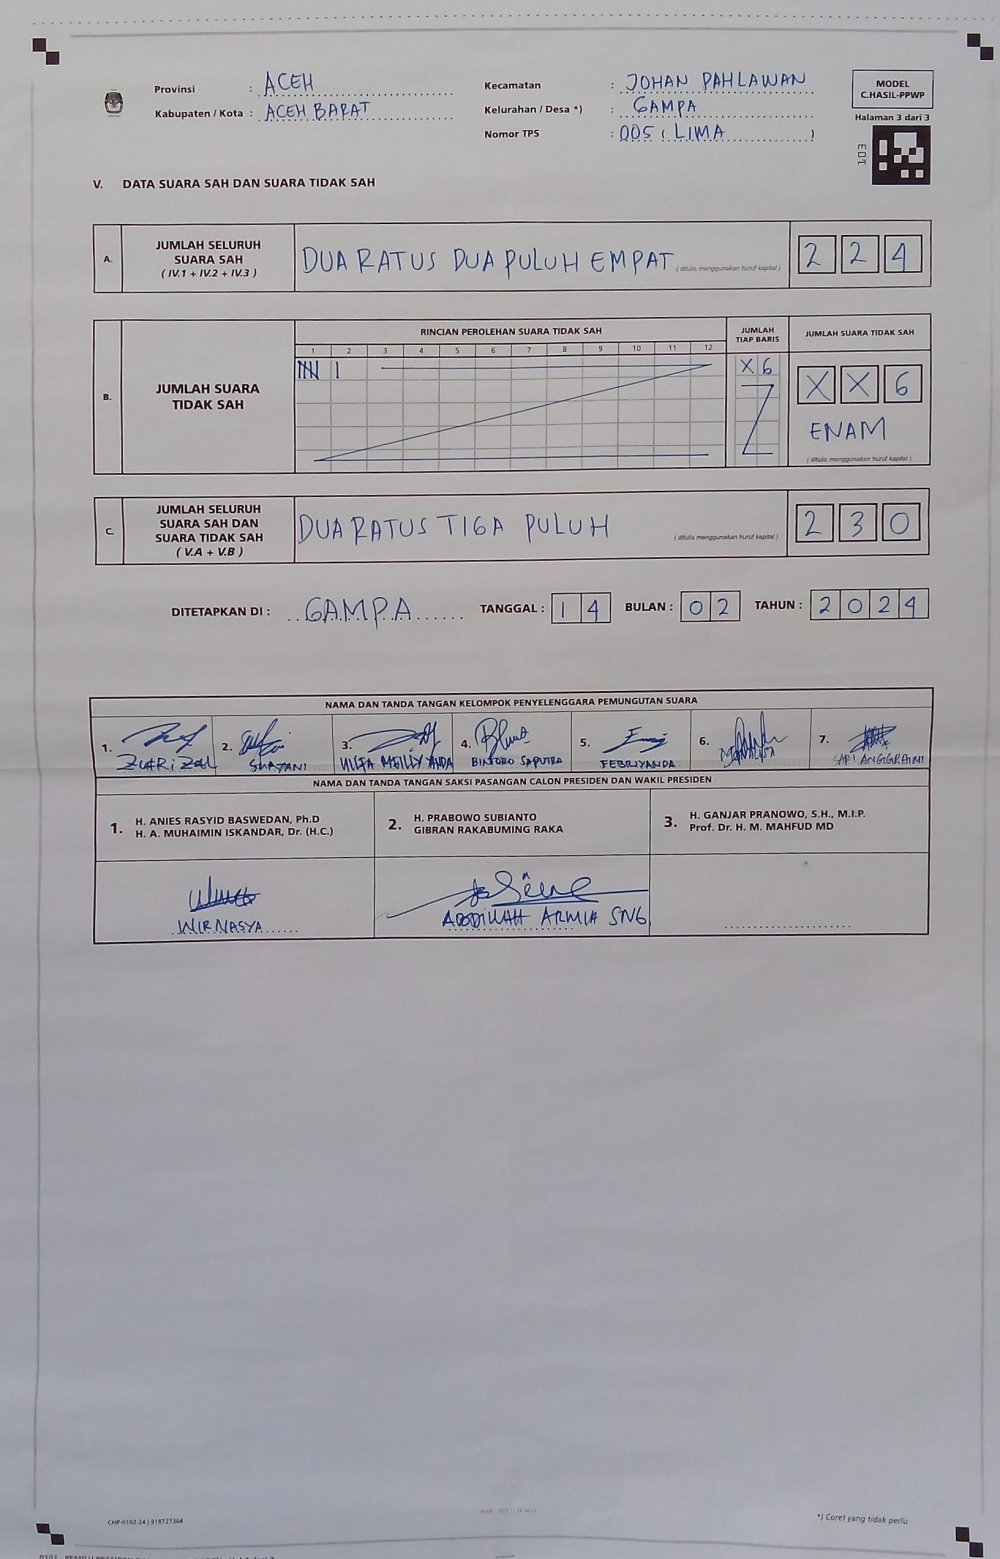 Provinsi : ACEH
Kabupaten / Kota : ACEH BARAT
Kecamatan : JOHAN PAHLAWAN
Kelurahan / Desa *) : GAMPA
Nomor TPS : 005 ( LIMA )
MODEL
C.HASIL-PPWP
Halaman 3 dari 3
V. DATA SUARA SAH DAN SUARA TIDAK SAH
A. JUMLAH SELURUH
SUARA SAH
( IV.1 + IV.2 + IV.3 )
DUA RATUS DUA PULUH EMPAT ( ditulis menggunakan huruf kapital ) 2 2 4
B. JUMLAH SUARA
TIDAK SAH
RINCIAN PEROLEHAN SUARA TIDAK SAH
1 2 3 4 5 6 7 8 9 10 11 12
JUMLAH
TIAP BARIS
X 6
JUMLAH SUARA TIDAK SAH
X X 6
ENAM
( ditulis menggunakan huruf kapital )
C. JUMLAH SELURUH
SUARA SAH DAN
SUARA TIDAK SAH
( V.A + V.B )
DUA RATUS TIGA PULUH ( ditulis menggunakan huruf kapital ) 2 3 0
DITETAPKAN DI : GAMPA TANGGAL : 1 4 BULAN : 0 2 TAHUN : 2 0 2 4
NAMA DAN TANDA TANGAN KELOMPOK PENYELENGGARA PEMUNGUTAN SUARA
1. 2. 3. 4. 5. 6. 7.
BINTORO SAPUTRA FEBRIYANDA
NAMA DAN TANDA TANGAN SAKSI PASANGAN CALON PRESIDEN DAN WAKIL PRESIDEN
1. H. ANIES RASYID BASWEDAN, Ph.D
H. A. MUHAIMIN ISKANDAR, Dr. (H.C.)
2. H. PRABOWO SUBIANTO
GIBRAN RAKABUMING RAKA
3. H. GANJAR PRANOWO, S.H., M.I.P.
Prof. Dr. H. M. MAHFUD MD
WIRNASYA
ABDILLAH ARMIA SNG
CHP-0102-24 | 918727364
*) Coret yang tidak perlu